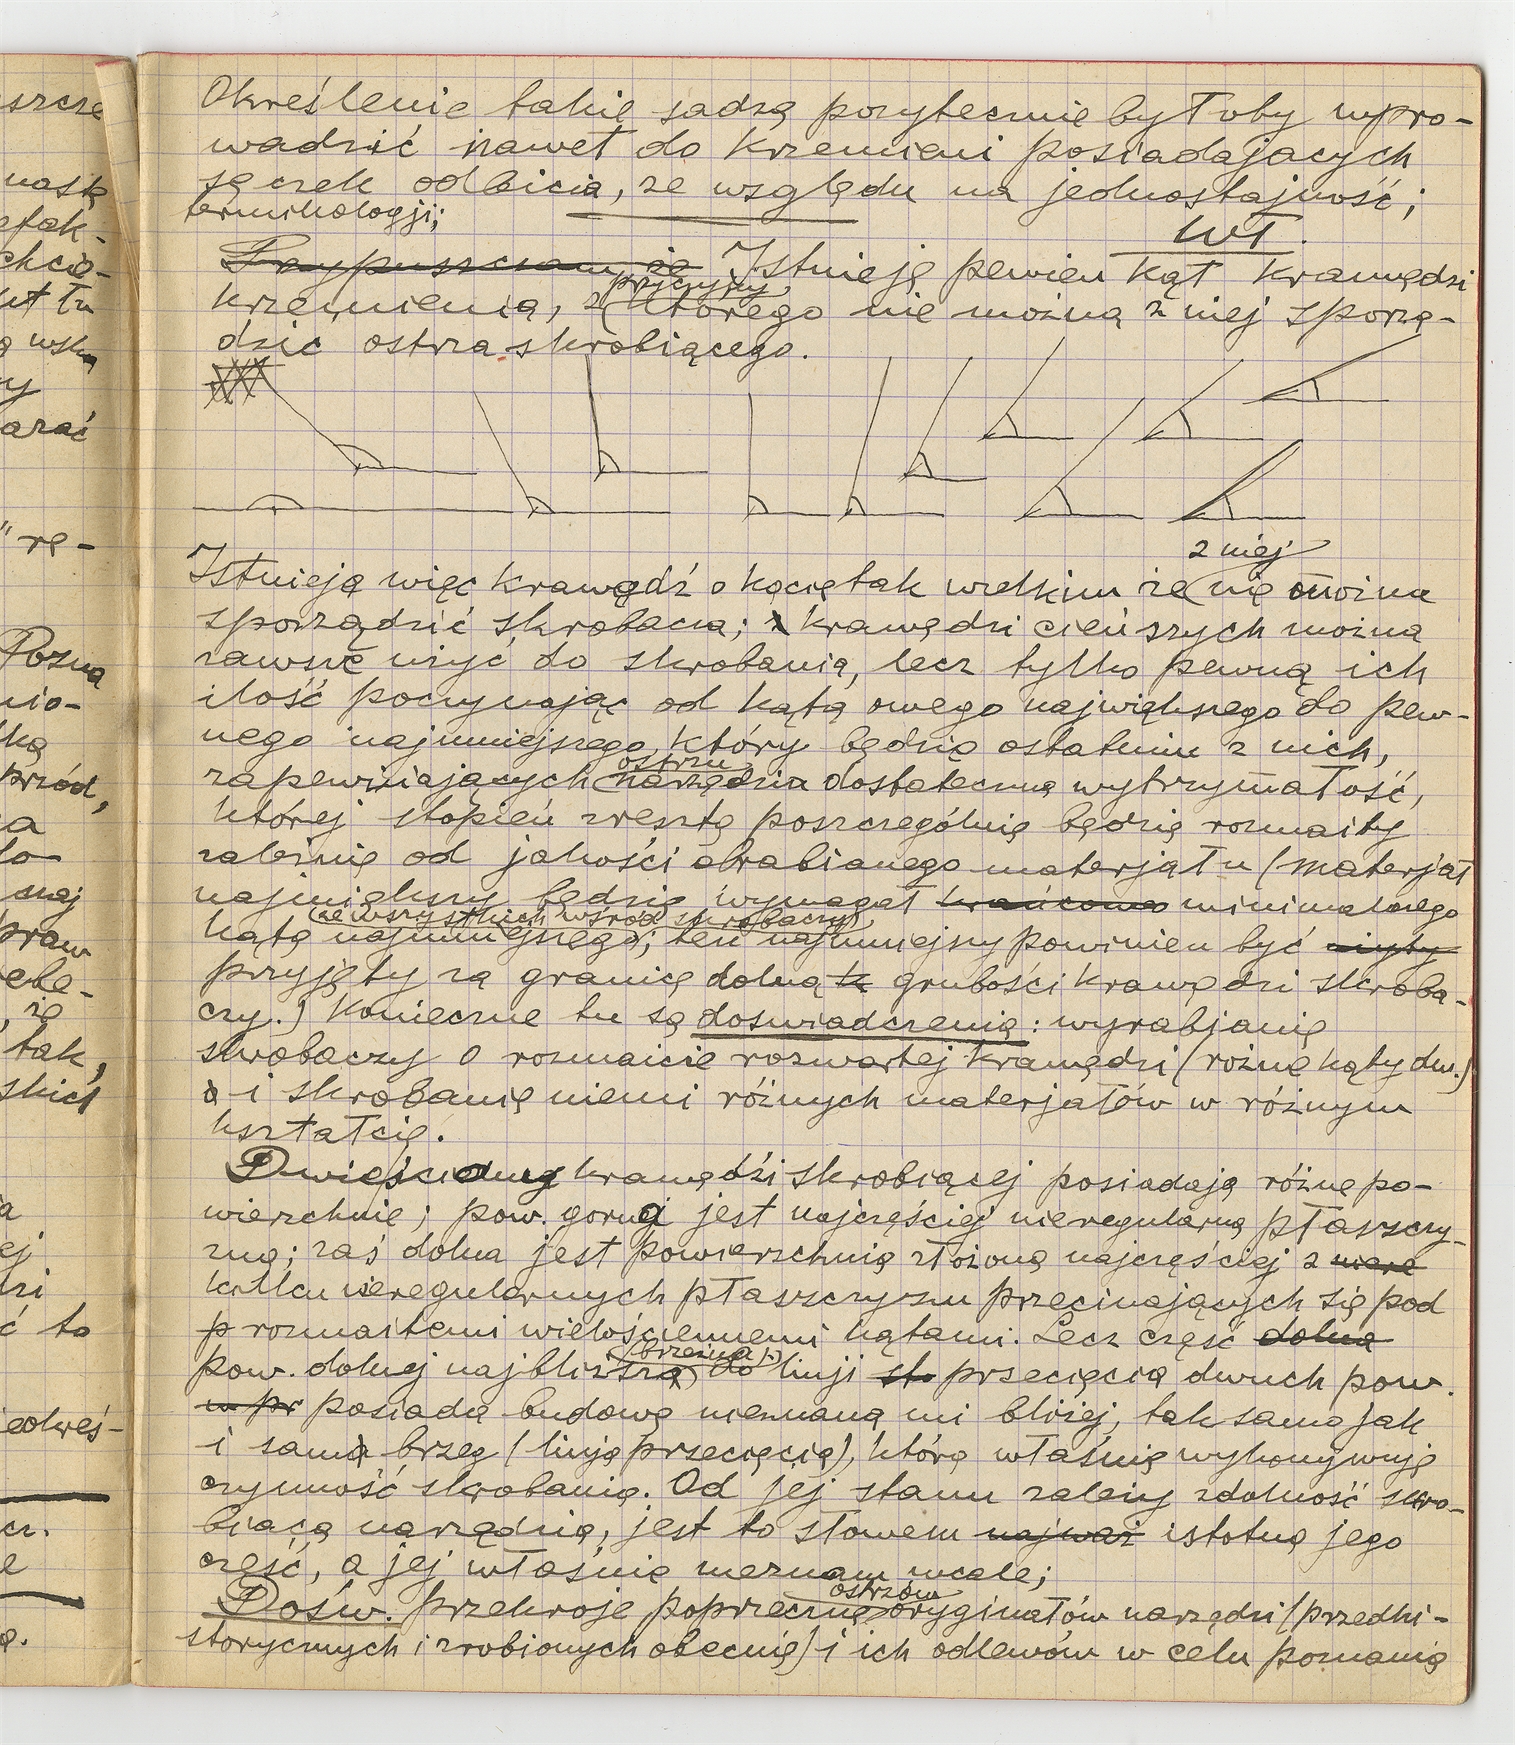 Określenie takie sadzą pożytecznie byłoby wpro-
wadzić nawet do krzemieni posiadających
sęczek odbicia, ze względu na jednostajność;
terminologji;
WŁ.
Przypuszczam, że Istnieje pewien kąt krawędzi
przyczyny
krzemienia, z którego nie można z niej sporzą-
dzić ostrza skrobiącego.
z niej
Istnieją więc krawędź o kącie tak wielkim że nie można
sporządzić skrobacza; z krawędzi cieńszych można
zawsze użyć do skrobania, lecz tylko pewną ich
ilość poczynając od kąta owego największego do pew-
nego najmniejszego, który będzie ostatnim z nich,
ostrzu
zapewniających narzędzia dostateczną wytrzymałość,
której stopień zresztą poszczególnie będzie rozmaity
zależnie od jakości obrabianego materjału (materjał
największy będzie wymagał krańcowo minimalnego
(ze wszystkich wśród skrobaczy)
kąta najmniejszego; ten najmniejszy powinien być
przyjęty za granicę dolną grubości krawędzi skroba-
czy.) Konieczne tu są doświadczenia: wyrabianie
skrobaczy o rozmaicie rozwartej krawędzi (różne kąty dw.)
i skrobanie niemi różnych materjałów w różnym
kształcie.
Dwie ściany krawędzi skrobiącej posiadają różne po-
wierzchnie; pow. górna jest najczęściej nieregularną płaszczy-
zną; zaś dolna jest powierzchnią złożoną najczęściej z
kilku nieregularnych płaszczyzn przecinających się pod
p rozmaitemi wielościennemi kątami. Lecz część dolna
(brzeżna)
pow. dolnej najbliższa do linji sk przecięcia dwuch pow.
w pr posiada budowę nieznaną mi bliżej, tak samo jak
i sam brzeg (linja przecięcia), którą właśnie wykonywuje
czynność skrobania. Od jej stanu zależy zdolność skro-
biąca narzędzia, jest to słowem najważ istotna jego
część, a jej właśnie nieznam wcale;
ostrzów
Dośw. przekroje poprzeczne oryginałów narzędzi (przedhi-
storycznych i zrobionych obecnie) i ich odlewów w celu poznania